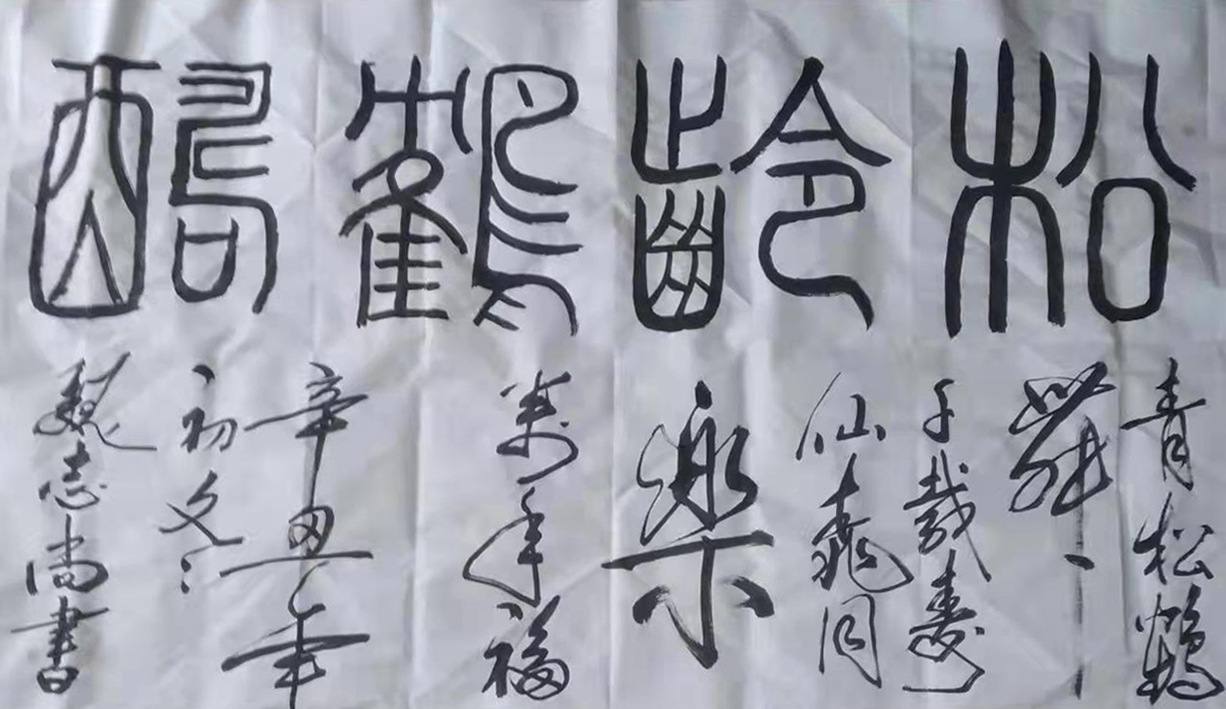 松齡鶴
青松鶴
舞
千載壽
仙龜同
樂
萬年福
辛丑年
初冬
魏志尚書